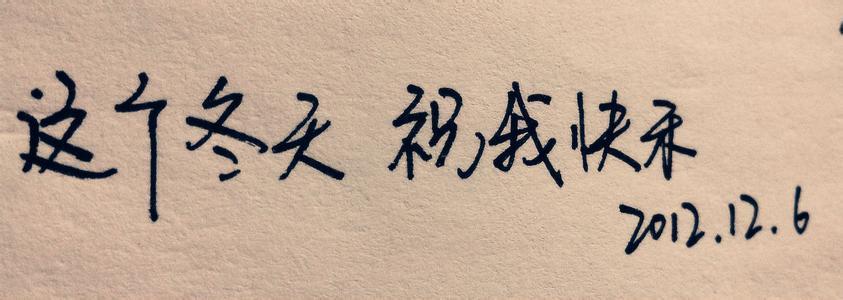 这个冬天 祝我快乐
2012.12.6